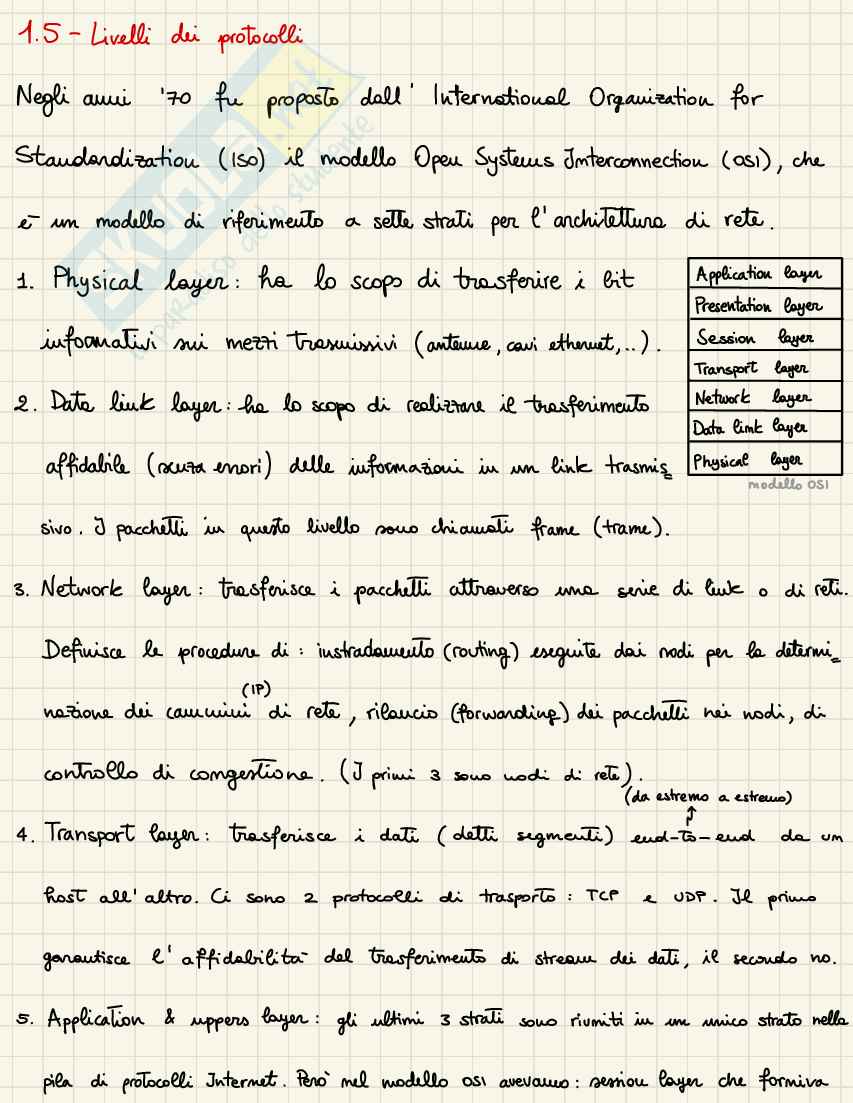 1.5 - Livelli dei protocolli
Negli anni '70 fu proposto dall' International Organization for
Standardization (ISO) il modello Open Systems Interconnection (OSI), che
è un modello di riferimento a sette strati per l'architettura di rete.
1. Physical layer: ha lo scopo di trasferire i bit
informativi sui mezzi trasmissivi (antenne, cavi ethernet,..).
2. Data link layer: ha lo scopo di realizzare il trasferimento
affidabile (senza errori) delle informazioni in un link trasmis=
sivo. I pacchetti in questo livello sono chiamati frame (trame).
Application layer
Presentation layer
Session layer
Transport layer
Network layer
Data link layer
Physical layer
modello OSI
3. Network layer: trasferisce i pacchetti attraverso una serie di link o di reti.
Definisce le procedure di: instradamento (routing) eseguite dai nodi per la determi=
(IP)
nazione dei cammini di rete, rilancio (forwarding) dei pacchetti nei nodi, di
controllo di congestione. (I primi 3 sono nodi di rete).
(da estremo a estremo)
4. Transport layer: trasferisce i dati (detti segmenti) end-to-end da un
host all'altro. Ci sono 2 protocolli di trasporto: TCP e UDP. Il primo
garantisce l'affidabilità del trasferimento di stream dei dati, il secondo no.
5. Application & uppers layer: gli ultimi 3 strati sono riuniti in un unico strato nella
pila di protocolli Internet. Però nel modello OSI avevamo: session layer che forniva
SKUOLA.net
il paradiso dello studente